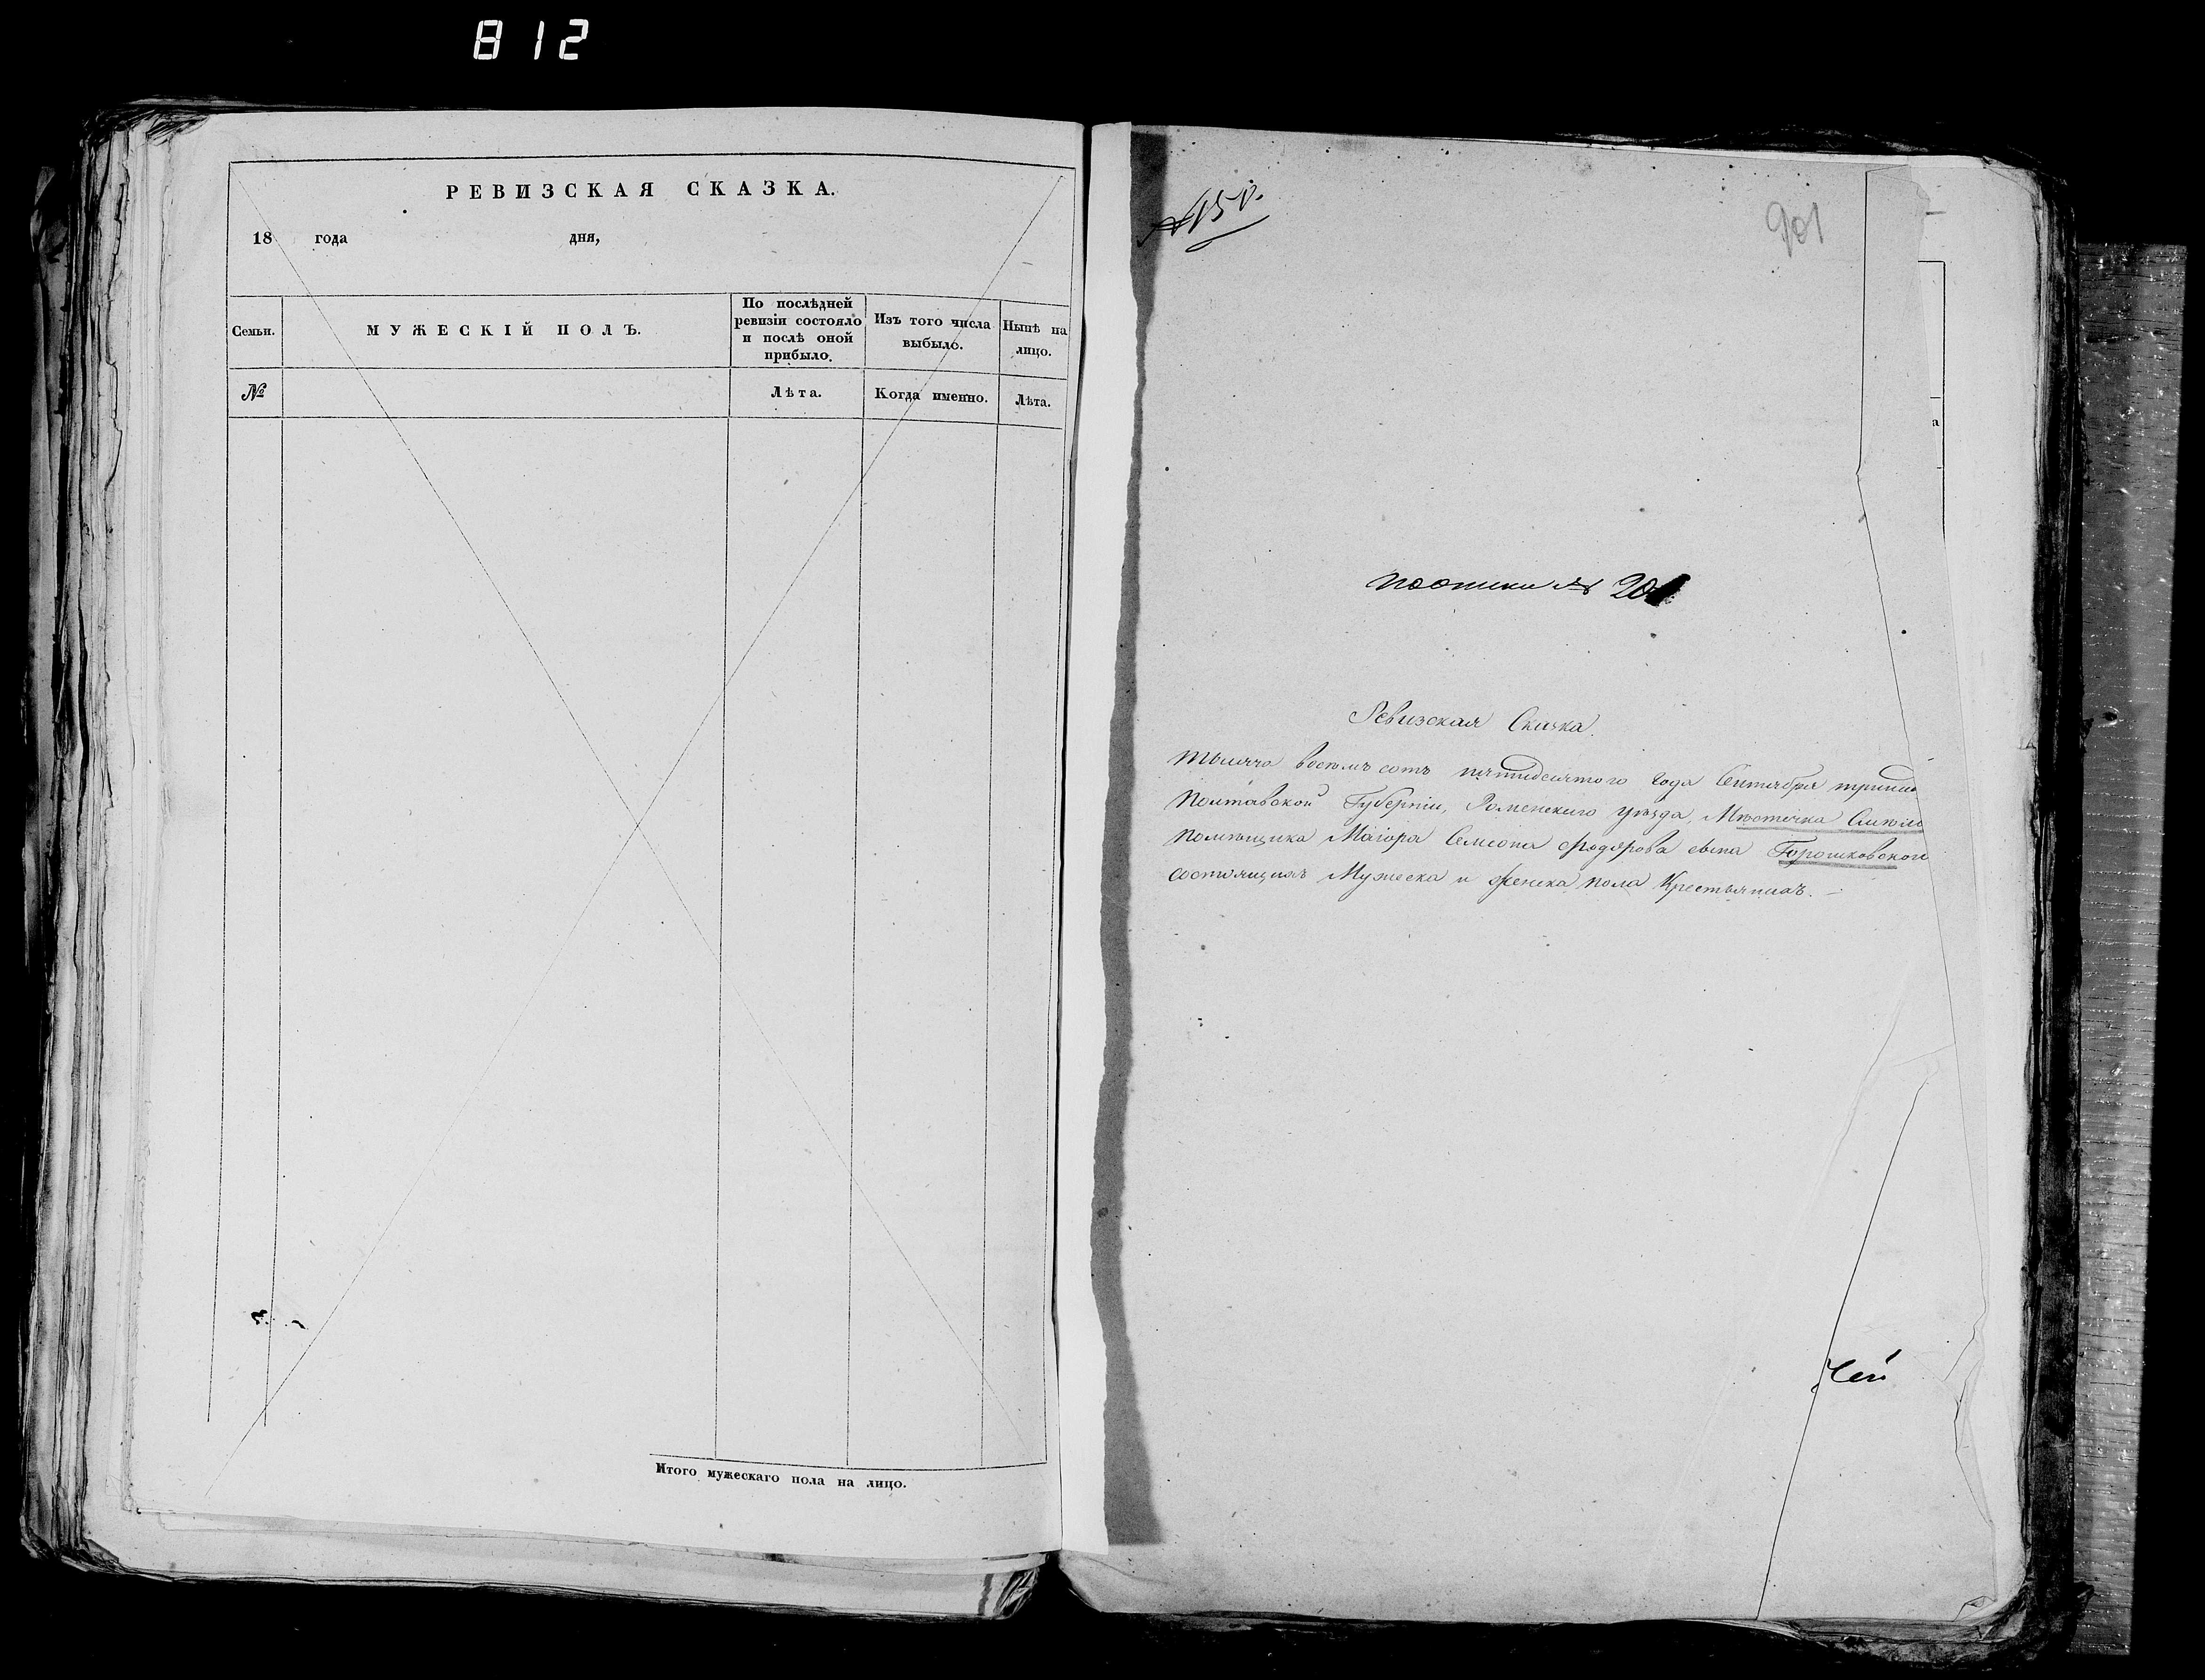 812
РЕВИЗСКАЯ СКАЗКА.
18 года дня,
Семьи.
МУЖЕСКІЙ ПОЛЪ.
По послѣдней ревизіи состояло и послѣ оной прибыло.
Изъ того числа выбыло.
Нынѣ на лицо.
№
Лѣта.
Когда именно.
Лѣта.
Итого мужескаго пола на лицо.
901
а
№ 201
Ревизская Сказка.
Тысяча восемь сотъ пятидесятого года Сентября
Полтавской Губерніи, Роменского уѣзда, Мѣстечка
помѣщика Маіора Семіона Федорова сына Горошковского
состоящихъ Мужеска и женска пола Крестьянахъ. –